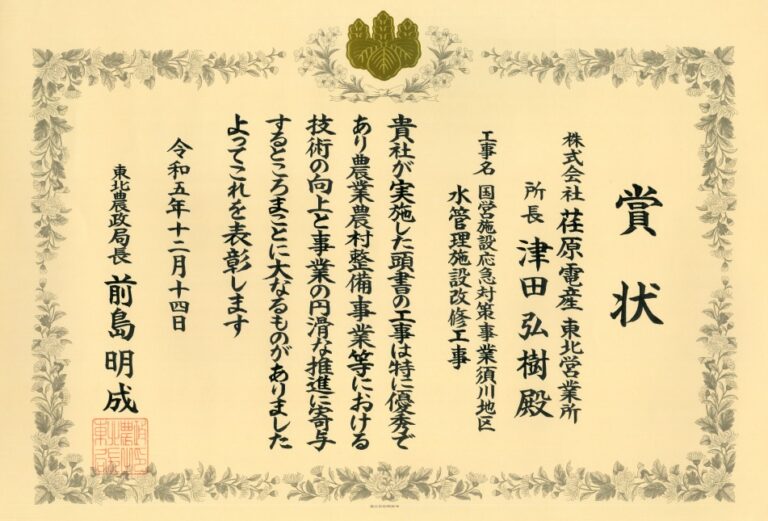 賞状
株式会社 荏原電産 東北営業所
所長 津田弘樹殿
工事名 国営施設応急対策事業須川地区
水管理施設改修工事
貴社が実施した頭書の工事は特に優秀で
あり農業農村整備事業等における
技術の向上と事業の円滑な推進に寄与
するところまことに大なるものがありました
よってこれを表彰します
令和五年十二月十四日
東北農政局長 前島明成